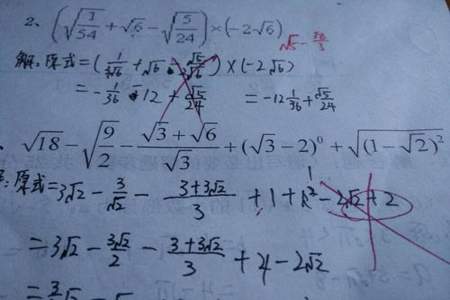 2、(√(1/54) + √6 − √(5/24)) × (−2√6)
√5 −
解: 原式 = ( 1/3√6 + √6 √5/2√6 ) × (−2√6)
= −1/36 −12 + √5/24 = −12 1/36 + √5/24
√18 − √(9/2) − (√3 + √6)/√3 + (√3 − 2)⁰ + √((1 − √2)²)
: 原式 = 3√2 − 3/√2 − (3+3√2)/3 + 1 + 1² − 2√2 + 2
= 3√2 − 3√2/2 − (3+3√2)/3 + 4 − 2√2